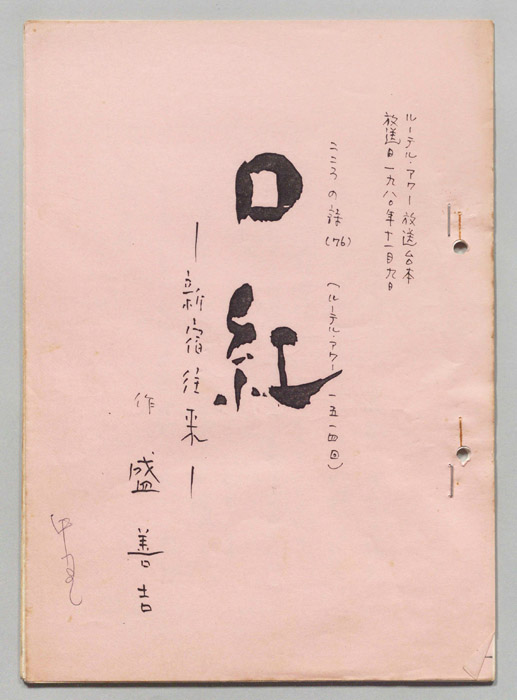 ルーテル・アワー放送台本
放送日一九八〇年十一月九日
こころの話(76) (ルーテル・アワー一五一四回)
口紅
—新宿往来—
作 盛善吉